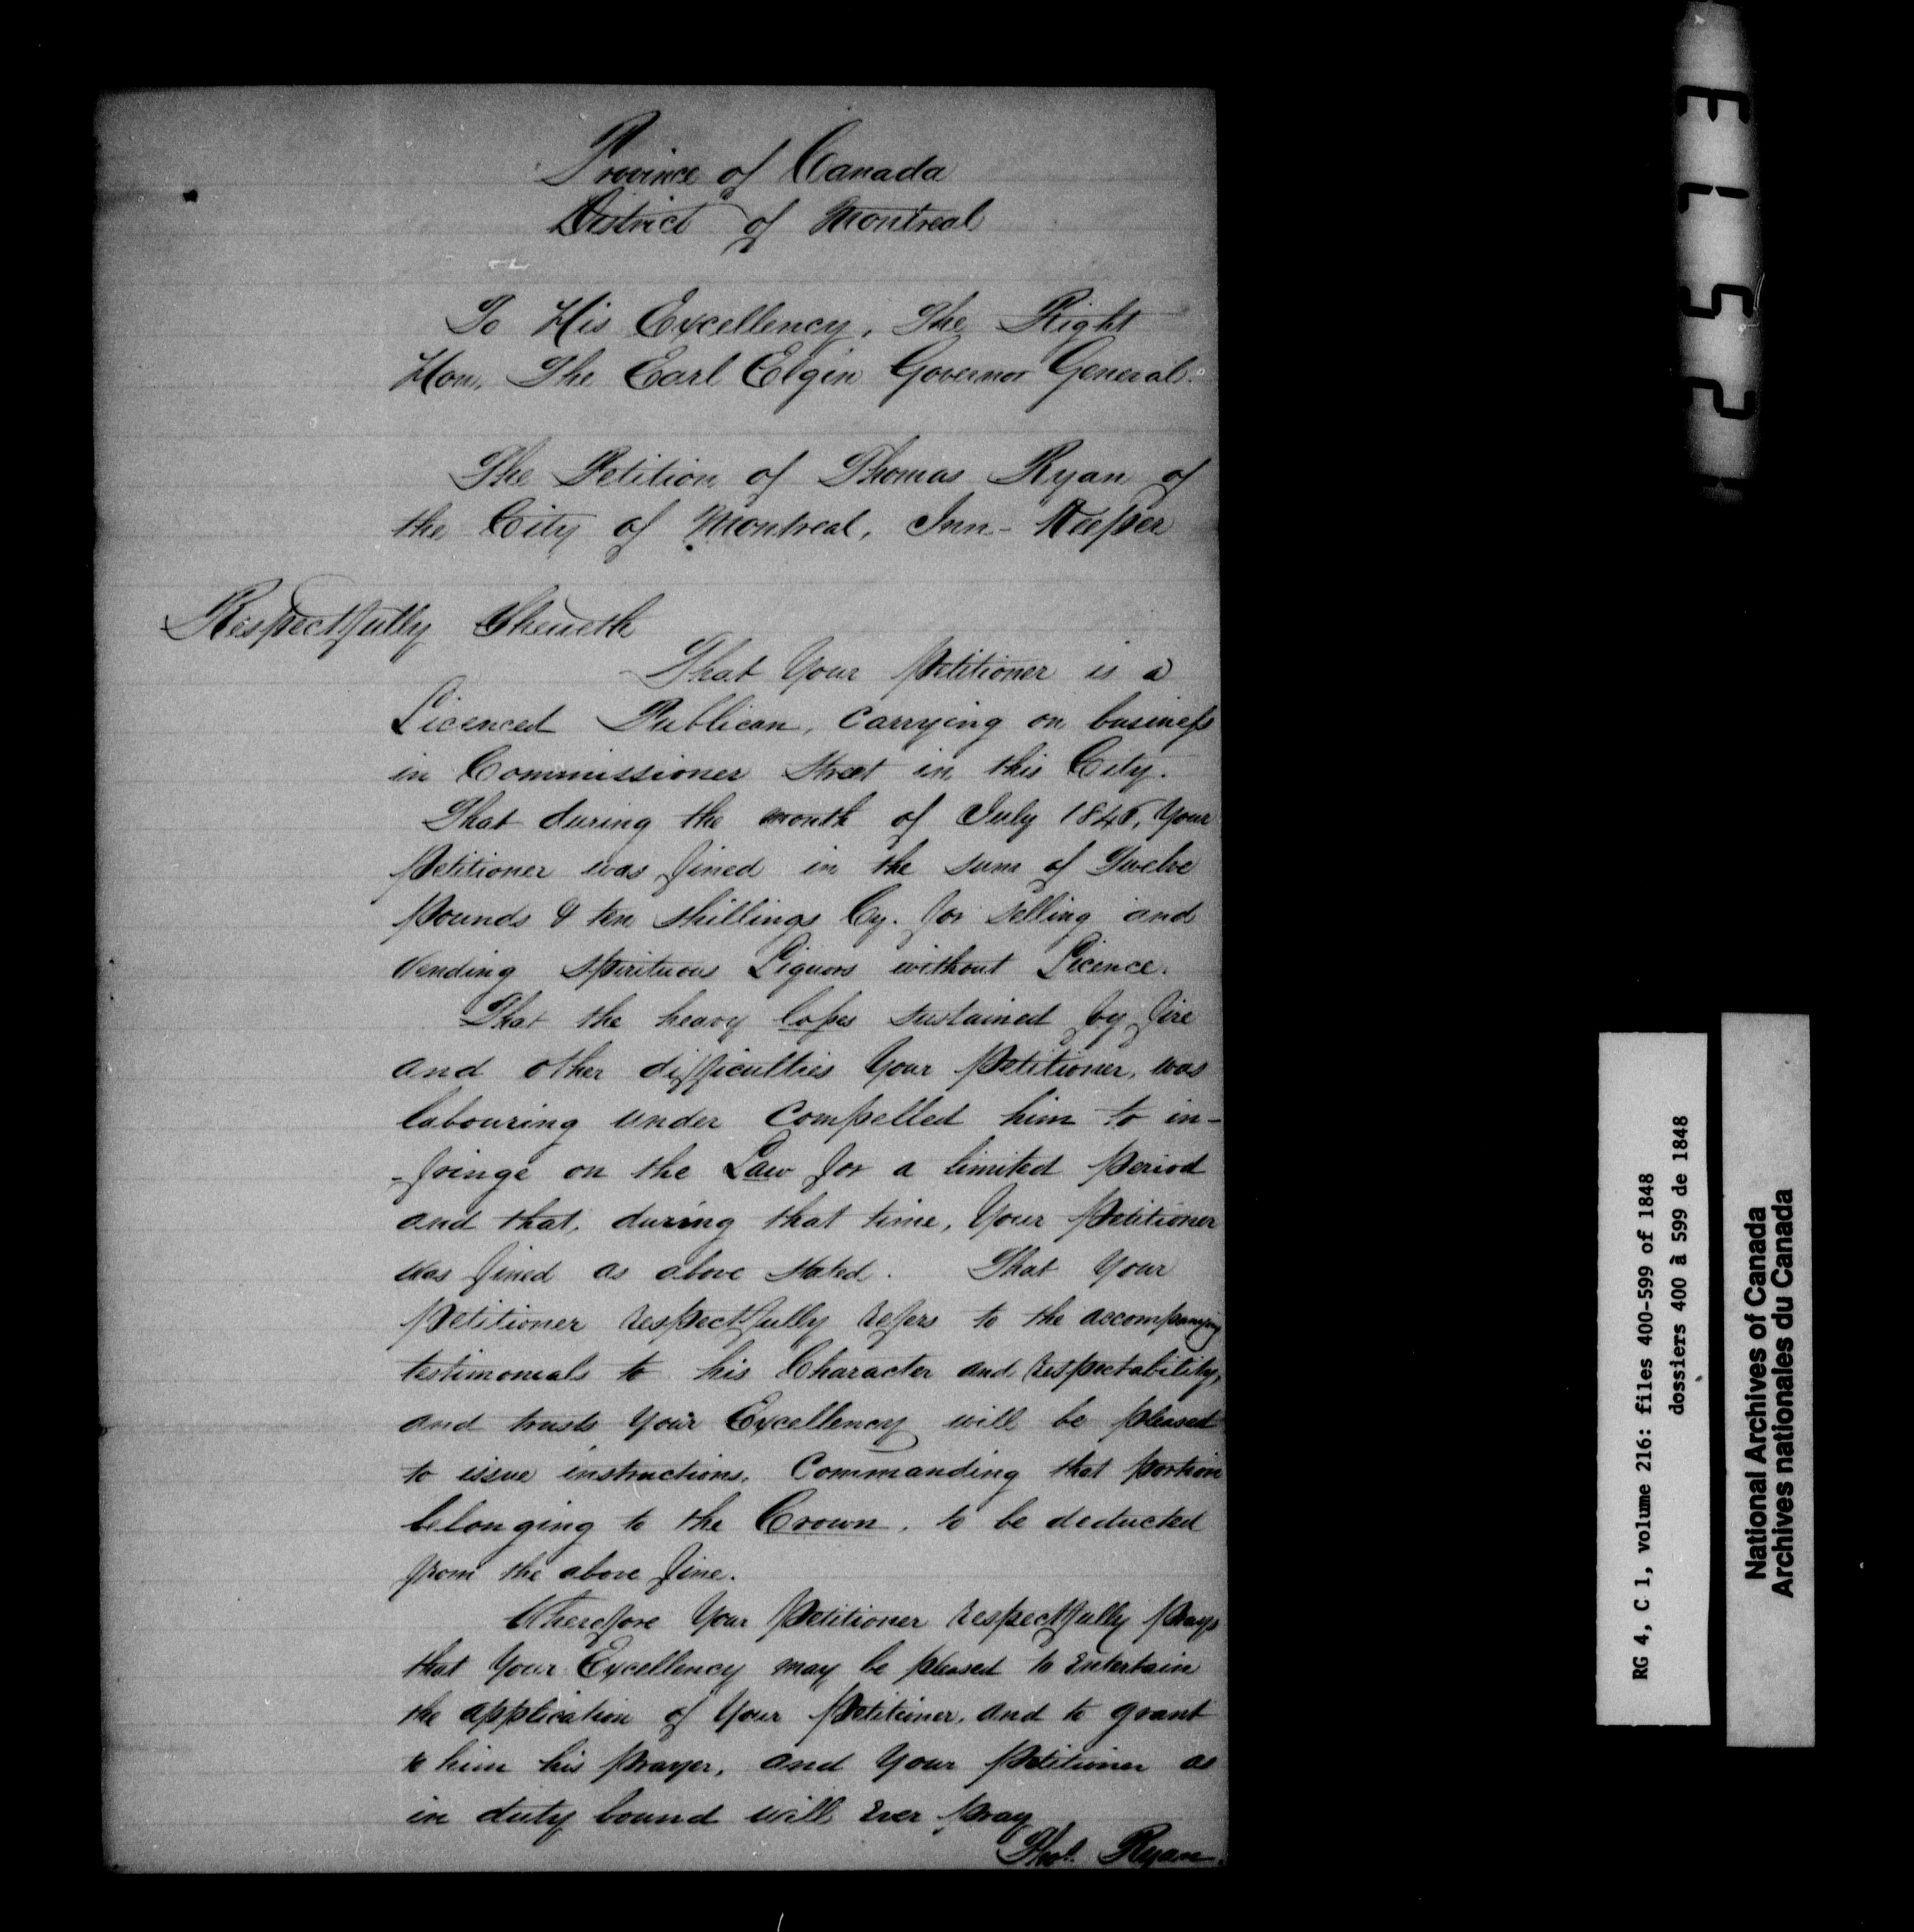 Province of Canada
District of Montreal
To His Excellency, The Right
Hon. The Earl Elgin Governor General.
The Petition of Thomas Ryan of
the City of Montreal, Inn-Keeper
Respectfully Sheweth
That Your Petitioner is a
Licenced Publican, Carrying on business
in Commissioner Street in this City.
That during the month of July 1846, Your
Petitioner was fined in the sum of Twelve
pounds & ten shillings Cy. for selling and
Vending spirituous Liquors without Licence.
That the heavy losses sustained by fire
and other difficulties Your Petitioner, was
labouring under Compelled him to in-
-fringe on the Law for a limited period
and that, during that time, Your Petitioner
was fined as above stated. That Your
Petitioner respectfully refers to the accompanying
testimonials to his Character and respectability,
and trusts Your Excellency will be pleased
to issue instructions, Commanding that portion
belonging to the Crown, to be deducted
from the above fine.
Wherefore Your Petitioner respectfully prays
that Your Excellency may be pleased to entertain
the application of Your Petitioner, and to grant
to him his prayer, and Your Petitioner as
in duty bound will ever pray
Thos. Ryan.
3152
RG 4, C 1, volume 216: files 400-599 of 1848
dossiers 400 à 599 de 1848
National Archives of Canada
Archives nationales du Canada